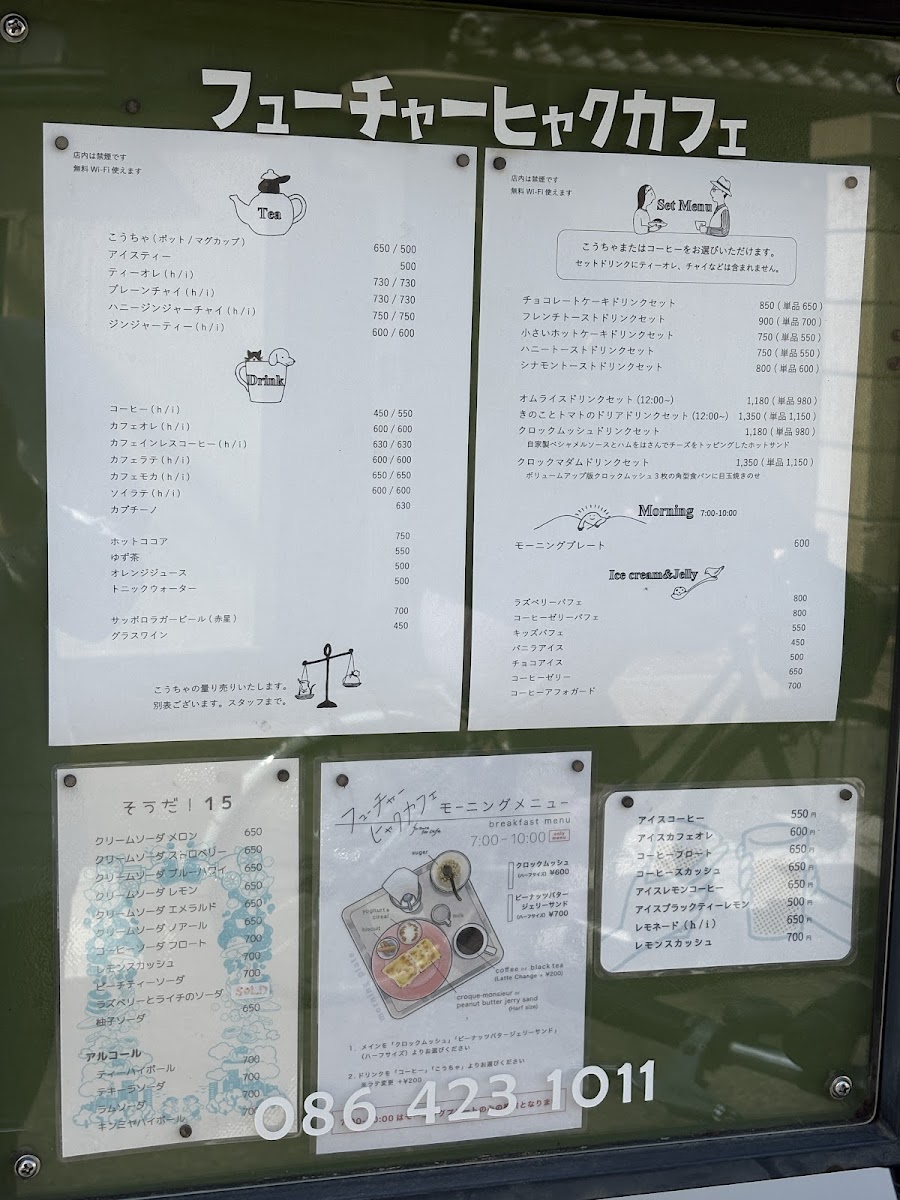 フューチャーヒャクカフェ
店内は禁煙です
無料 Wi-Fi 使えます
Tea
こうちゃ ( ポット / マグカップ ) 650 / 500
アイスティー 500
ティーオレ ( h / i ) 730 / 730
プレーンチャイ ( h / i ) 730 / 730
ハニージンジャーチャイ ( h / i ) 750 / 750
ジンジャーティー ( h / i ) 600 / 600
Drink
コーヒー ( h / i ) 450 / 550
カフェオレ ( h / i ) 600 / 600
カフェインレスコーヒー ( h / i ) 630 / 630
カフェラテ ( h / i ) 600 / 600
カフェモカ ( h / i ) 650 / 650
ソイラテ ( h / i ) 600 / 600
カプチーノ 630
ホットココア 750
ゆず茶 550
オレンジジュース 500
トニックウォーター 500
サッポロラガービール ( 赤星 ) 700
グラスワイン 450
こうちゃの量り売りいたします。
別表ございます。スタッフまで。
店内は禁煙です
無料 Wi-Fi 使えます
Set Menu
こうちゃまたはコーヒーをお選びいただけます。
セットドリンクにティーオレ、チャイなどは含まれません。
チョコレートケーキドリンクセット 850 ( 単品 650 )
フレンチトーストドリンクセット 900 ( 単品 700 )
小さいホットケーキドリンクセット 750 ( 単品 550 )
ハニートーストドリンクセット 750 ( 単品 550 )
シナモントーストドリンクセット 800 ( 単品 600 )
オムライスドリンクセット (12:00~) 1,180 ( 単品 980 )
きのことトマトのドリアドリンクセット (12:00~) 1,350 ( 単品 1,150 )
クロックムッシュドリンクセット 1,180 ( 単品 980 )
自家製ベシャメルソースとハムをはさんでチーズをトッピングしたホットサンド
クロックマダムドリンクセット 1,350 ( 単品 1,150 )
ボリュームアップ版クロックムッシュ 3 枚の角型食パンに目玉焼きのせ
Morning 7:00-10:00
モーニングプレート 600
Ice cream&Jelly
ラズベリーパフェ 800
コーヒーゼリーパフェ 800
キッズパフェ 550
バニラアイス 450
チョコアイス 500
コーヒーゼリー 650
コーヒーアフォガード 700
そうだ！15
クリームソーダ メロン 650
クリームソーダ ストロベリー 650
クリームソーダ ブルーハワイ 650
クリームソーダ レモン 650
クリームソーダ エメラルド 650
クリームソーダ ノアール 650
コーヒー ソーダ フロート 700
レモンスカッシュ 700
ピーチティーソーダ 700
ラズベリーとライチのソーダ SOLD
柚子ソーダ 650
アルコール
ティーハイボール 700
テキーラソーダ 700
ラムソーダ 700
キンミヤハイボール
フューチャー
ヒャクカフェ
モーニングメニュー
breakfast menu
7:00-10:00 only menu
suger
yoghurt & cereal
biscuit
milk
morning plate
クロックムッシュ
(ハーフサイズ) ¥600
ピーナッツバター
ジェリーサンド
(ハーフサイズ) ¥700
coffee or black tea
(Latte Change + ¥200)
croque-monsieur or
peanut butter jerry sand
(Harf size)
1. メインを「クロックムッシュ」「ピーナッツバタージェリーサンド」
(ハーフサイズ) よりお選びください
2. ドリンクを「コーヒー」「こうちゃ」よりお選びください
※ラテ変更 +¥200
アイスコーヒー 550円
アイスカフェオレ 600円
コーヒーフロート 650円
コーヒースカッシュ 650円
アイスレモンコーヒー 650円
アイスブラックティーレモン 500円
レモネード ( h / i ) 650円
レモンスカッシュ 700円
086 423 1011